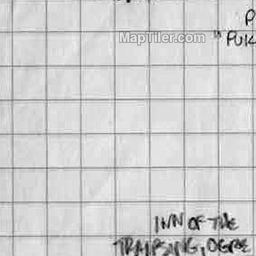 P
MapTiler.com
"PUK
INN OF THE
TRAIPSING, OGRE